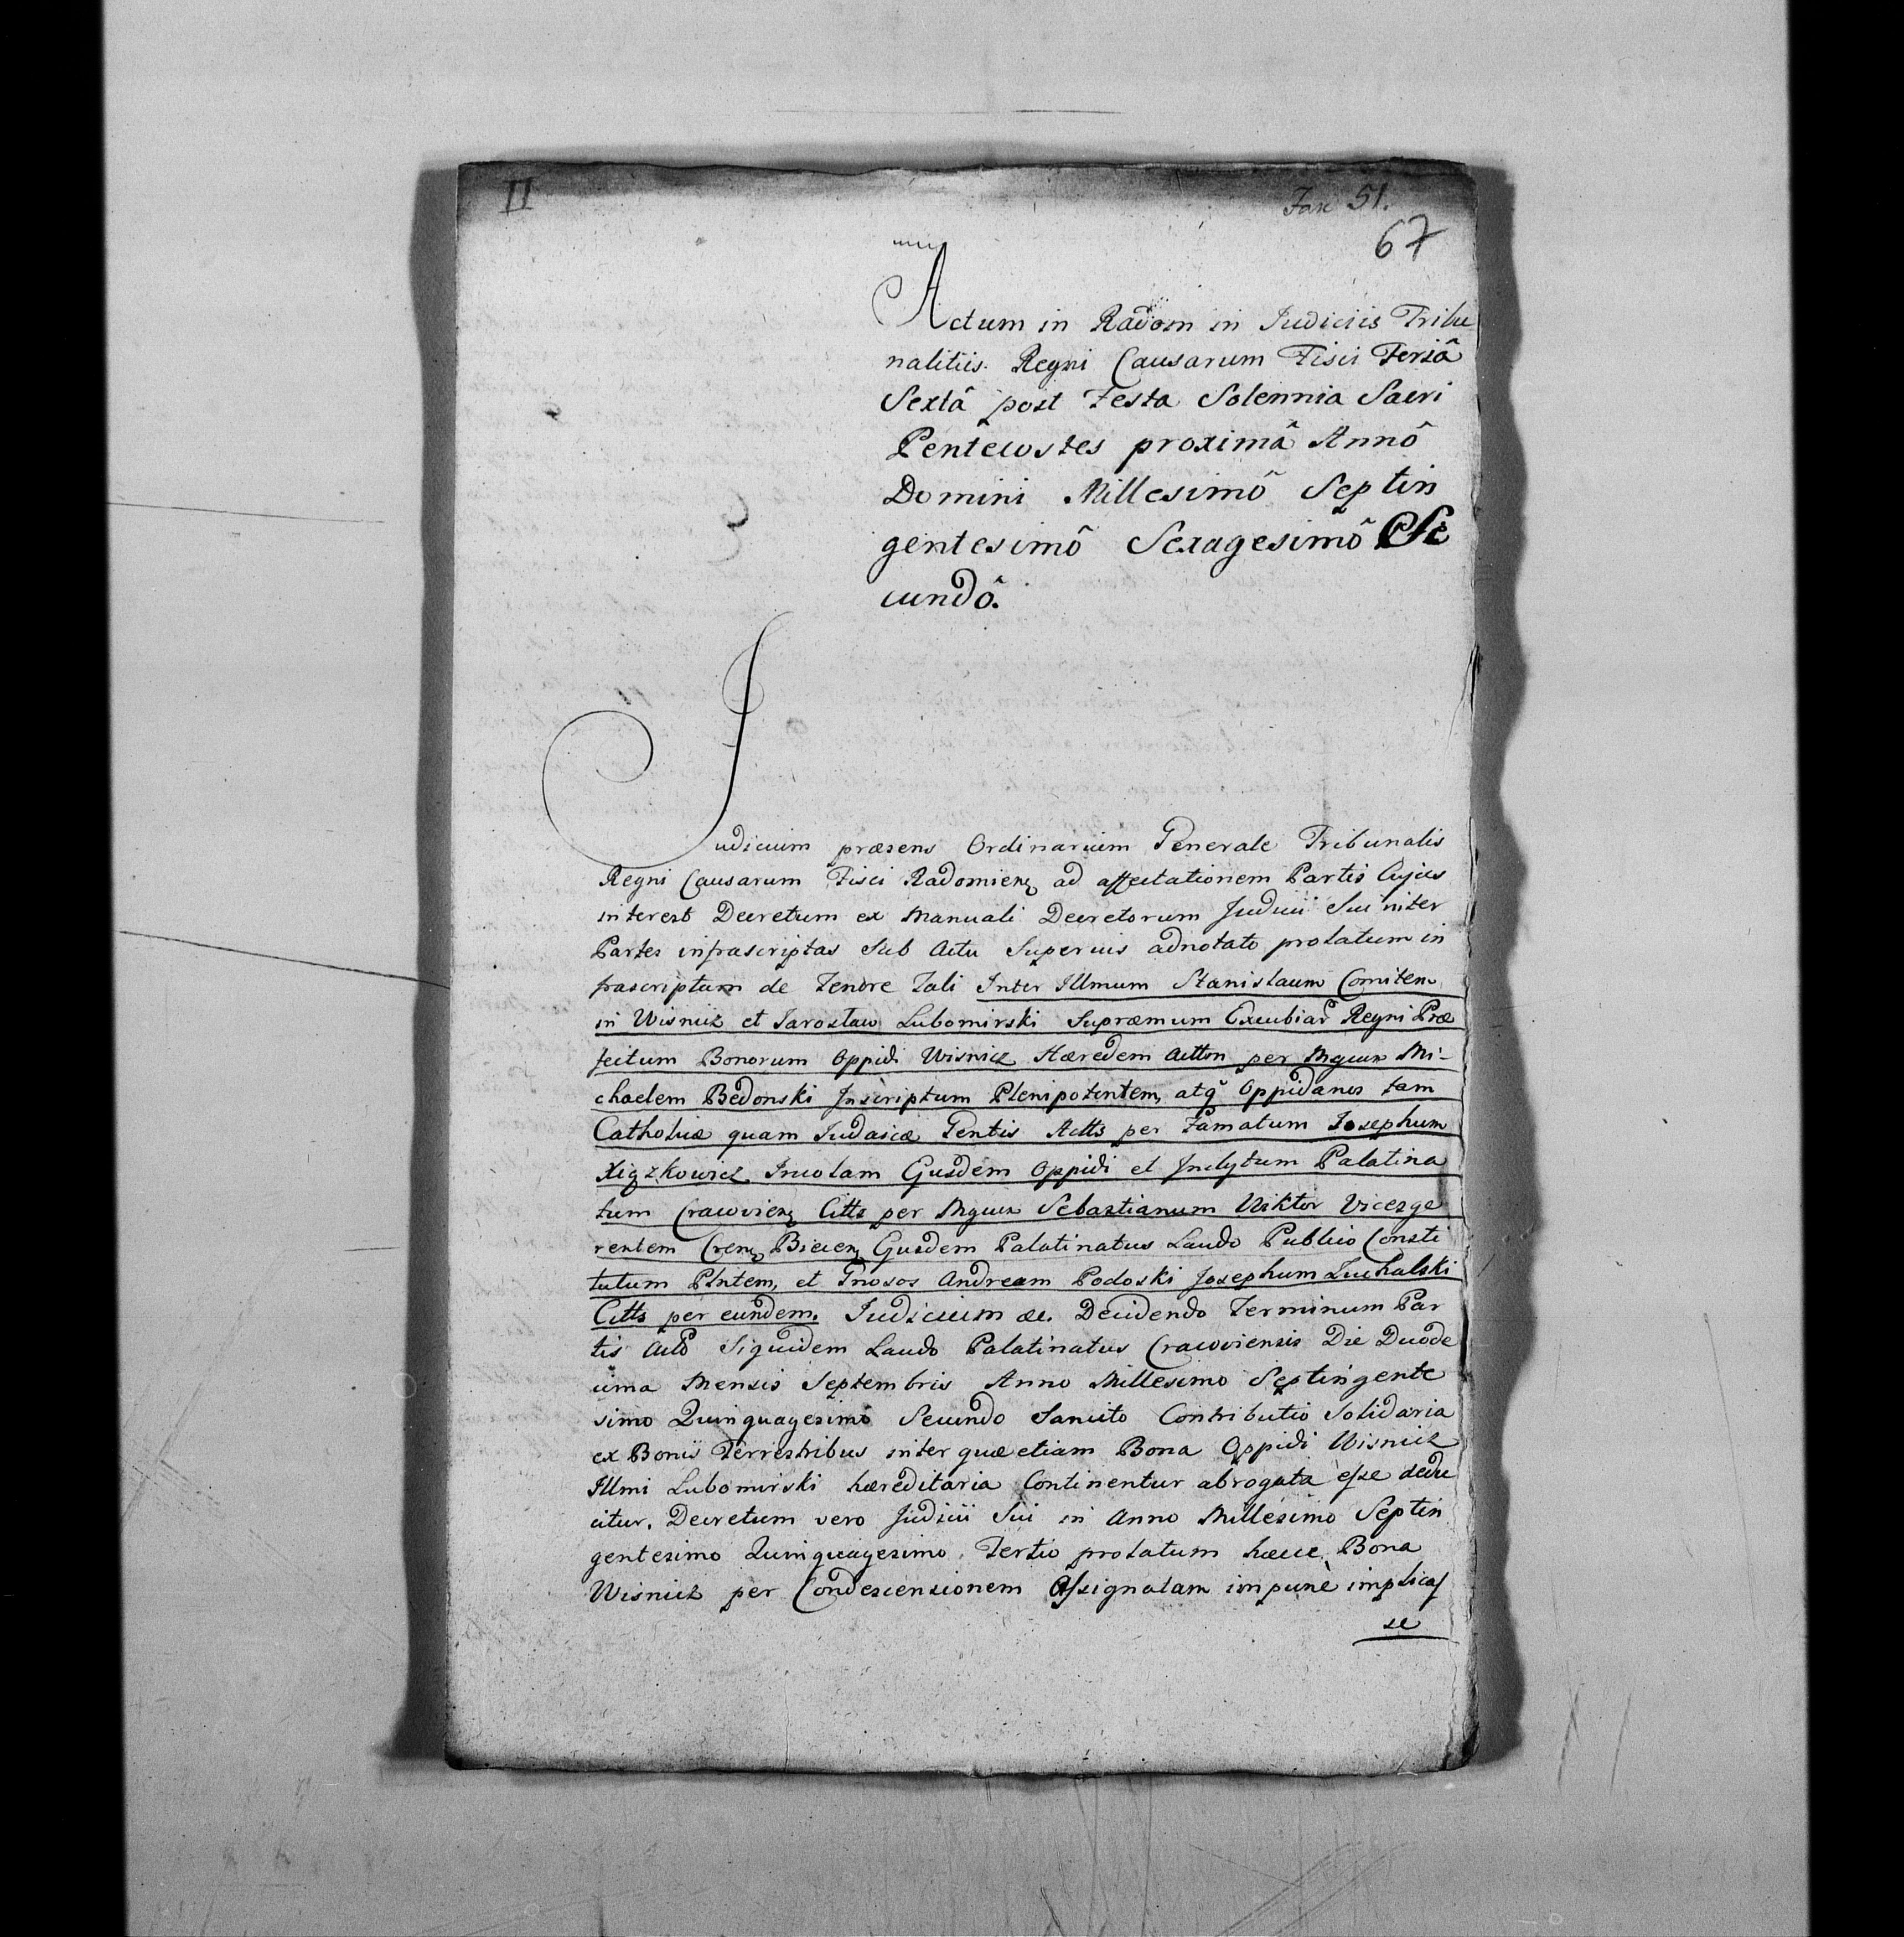 II
Fasc 51.
67
Actum in Radom in Judiciis Tribu
nalitiis Regni Causarum Fisci Feriâ
Sextâ post Festa Solennia Sacri
Pentecostes proximâ Annô
Domini Millesimô Septin
gentesimô Sexagesimô Se
cundô.
Judicium præsens Ordinarium Generale Tribunalis
Regni Causarum Fisci Radomien ad affectationem Partis Cujus
interest Decretum ex Manuali Decretorum Judicii Sui inter
Partes infrascriptas Sub Actu Superius adnotato prolatum in
frascriptum de Tenore Tali Inter Illmum Stanislaum Comitem
in Wisnicz et Jarosław Lubomirski Supræmum Excubiar Regni Præ
fectum Bonorum Oppidi Wisnicz Hæredem Actton per Mgcum Mi-
chaelem Bedonski Inscriptum Plenipotentem, atq Oppidanos tam
Catholicæ quam Judaicæ Gentis Actts per Famatum Josephum
Xiązkowicz Incolam Ejusdem Oppidi et Inclytum Palatina
tum Cracovien Citts per Mgcum Sebastianum Wiktor Vicesge
rentem Cren, Biecen Ejusdem Palatinatus Laudo Publico Consti
tutum Plntem, et Gnosos Andream Podoski Josephum Suchalski
Citts per eundem. Judicium &c. Decidendo Terminum Par
tis Acto Siquidem Laudo Palatinatus Cracoviensis Die Duode
cima Mensis Septembris Anno Millesimo Septingente
simo Quinquagesimo Secundo Sancito Contributio Solidaria
ex Bonis Terrestribus inter quæ etiam Bona Oppidi Wisnicz
Illmi Lubomirski hæreditaria Continentur abrogata esse dedu
citur. Decretum vero Judicii Sui in Anno Millesimo Septin
gentesimo Quinquagesimo Tertio prolatum hæcce Bona
Wisnicz per Condescensionem Assignatam impunè implicas
se